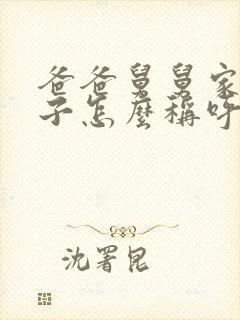 爸爸舅舅家
子怎麼稱呼
沈署昆